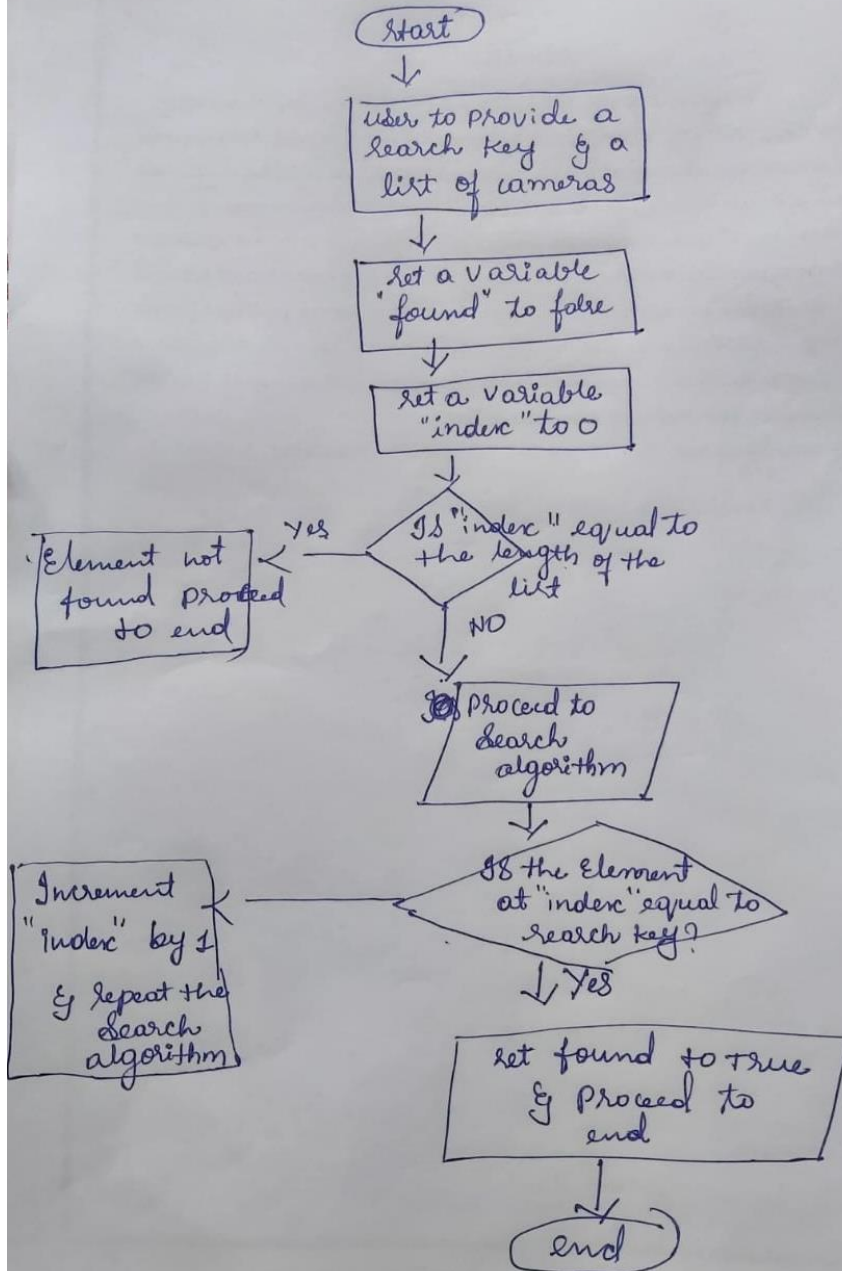 start
user to provide a
search key & a
list of cameras
set a variable
"found" to false
set a variable
"index" to 0
Is "index" equal to
the length of the
list
Yes
Element not
found proceed
to end
NO
Proceed to
search
algorithm
Is the Element
at "index" equal to
search key?
Increment
"index" by 1
& repeat the
search
algorithm
Yes
set found to True
& Proceed to
end
end